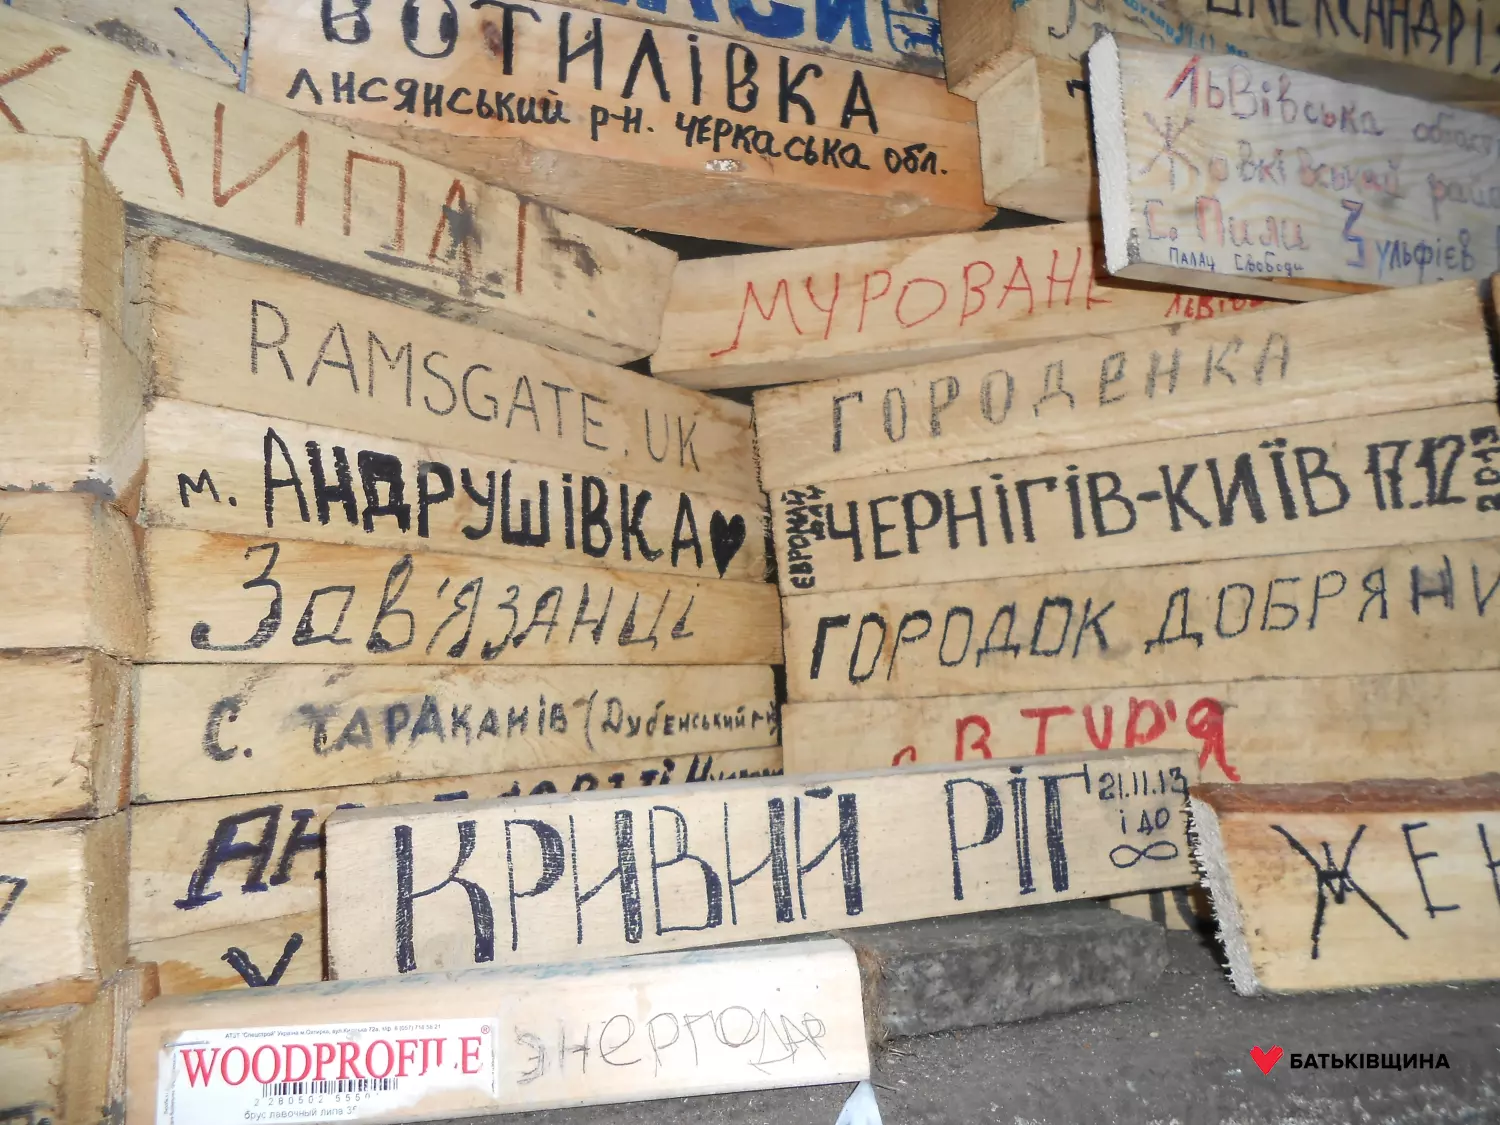 ВОТИЛІВКА
ЛИСЯНСЬКИЙ Р-Н. ЧЕРКАСЬКА ОБЛ.
ЛЬВІВСЬКА
Жовківський
С. Пили Зульфієв
ПАЛАЦ Свободи
ЛИПА
МУРОВАНЕ
RAMSGATE. UK
ГОРОДЕНКА
м. АНДРУШІВКА
ЧЕРНІГІВ-КИЇВ 17.12
2013
ЄВРОМАЙДАН
Зав'язанці
ГОРОДОК ДОБРЯНИ
С. ТАРАКАНІВ (Дубенський
с. ВТУР'Я
КРИВИЙ РІГ
21.11.13
і до
∞
ЖЕ
ЭНЕРГОДАР
WOODPROFILE®
2 280502 5550
брус лавочный липа
БАТЬКІВЩИНА